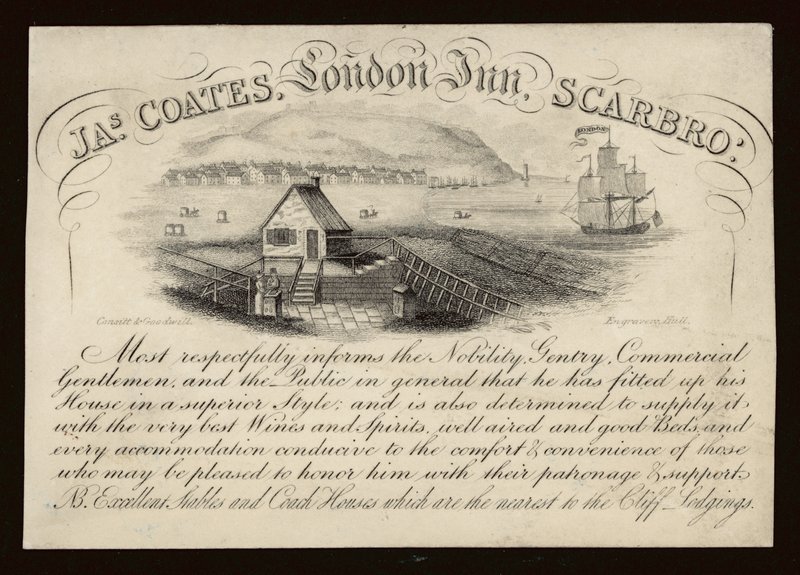 JAS. COATES, London Inn, SCARBRO:
LONDON
Consitt & Goodwill. Engravers, Hull.
Most respectfully informs the Nobility, Gentry, Commercial
Gentlemen, and the Public in general that he has fitted up his
House in a superior Style; and is also determined to supply it
with the very best Wines and Spirits, well aired and good Beds, and
every accommodation conducive to the comfort & convenience of those
who may be pleased to honor him with their patronage & support.
NB. Excellent Stables and Coach Houses which are the nearest to the Cliff-Lodgings.